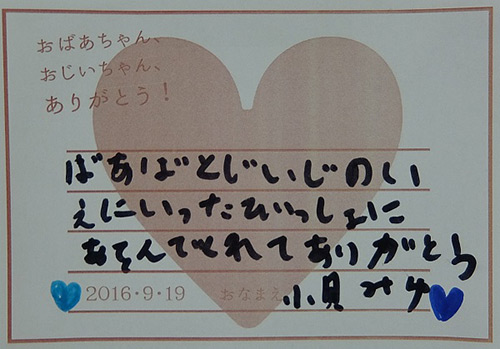 おばあちゃん、
おじいちゃん、
ありがとう！
ばあばとじいじのい
えにいったひいっしょに
あそんでくれてありがとう
2016・9・19 おなまえ 小貝みゆ